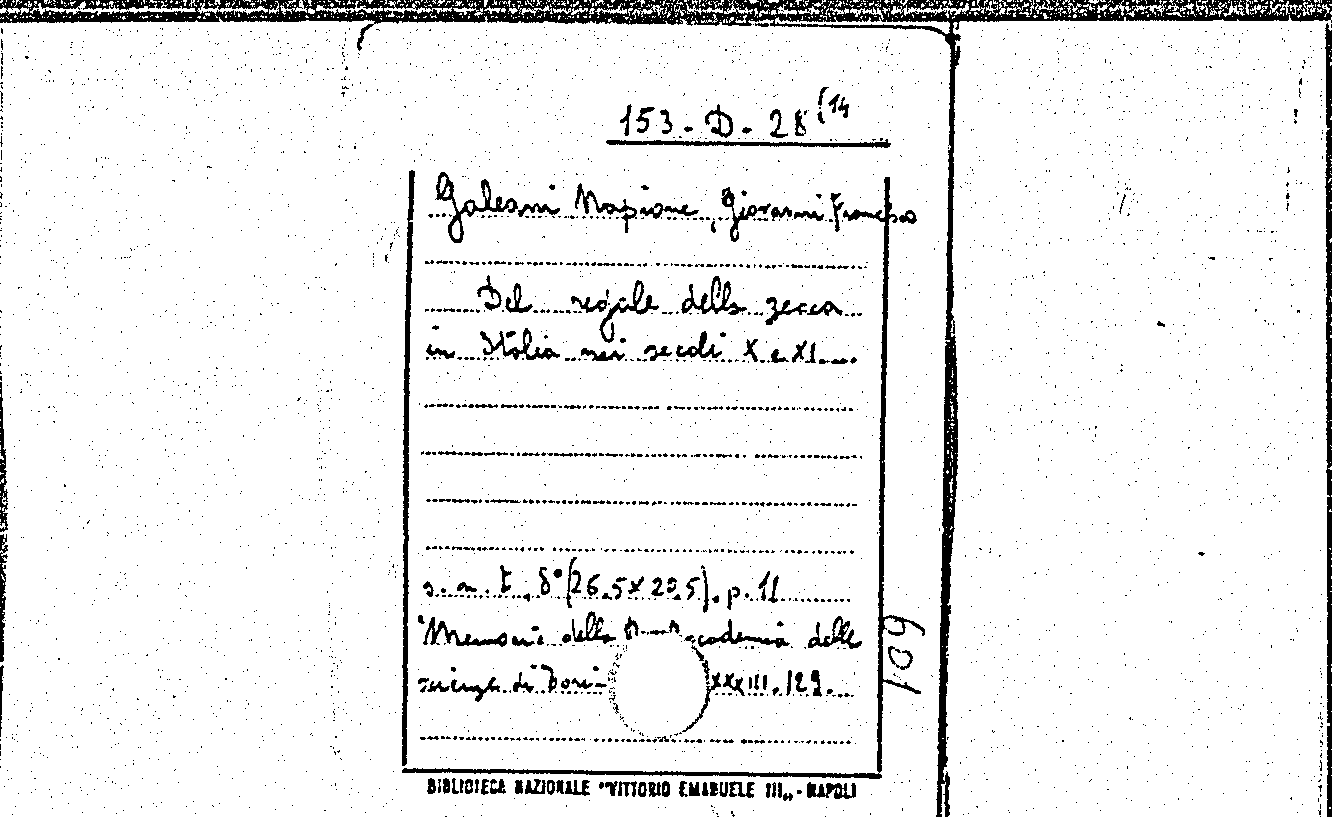 153. D. 28 (14
Galeani Napione, Giovanni Francesco
Del regale della zecca
in Italia nei secoli X e XI....
s. n. t., 8° (26,5x20,5), p. 11
Memorie della accademia delle
scienze di XXXIII. 129.
109
BIBLIOTECA NAZIONALE "VITTORIO EMANUELE III„ - NAPOLI